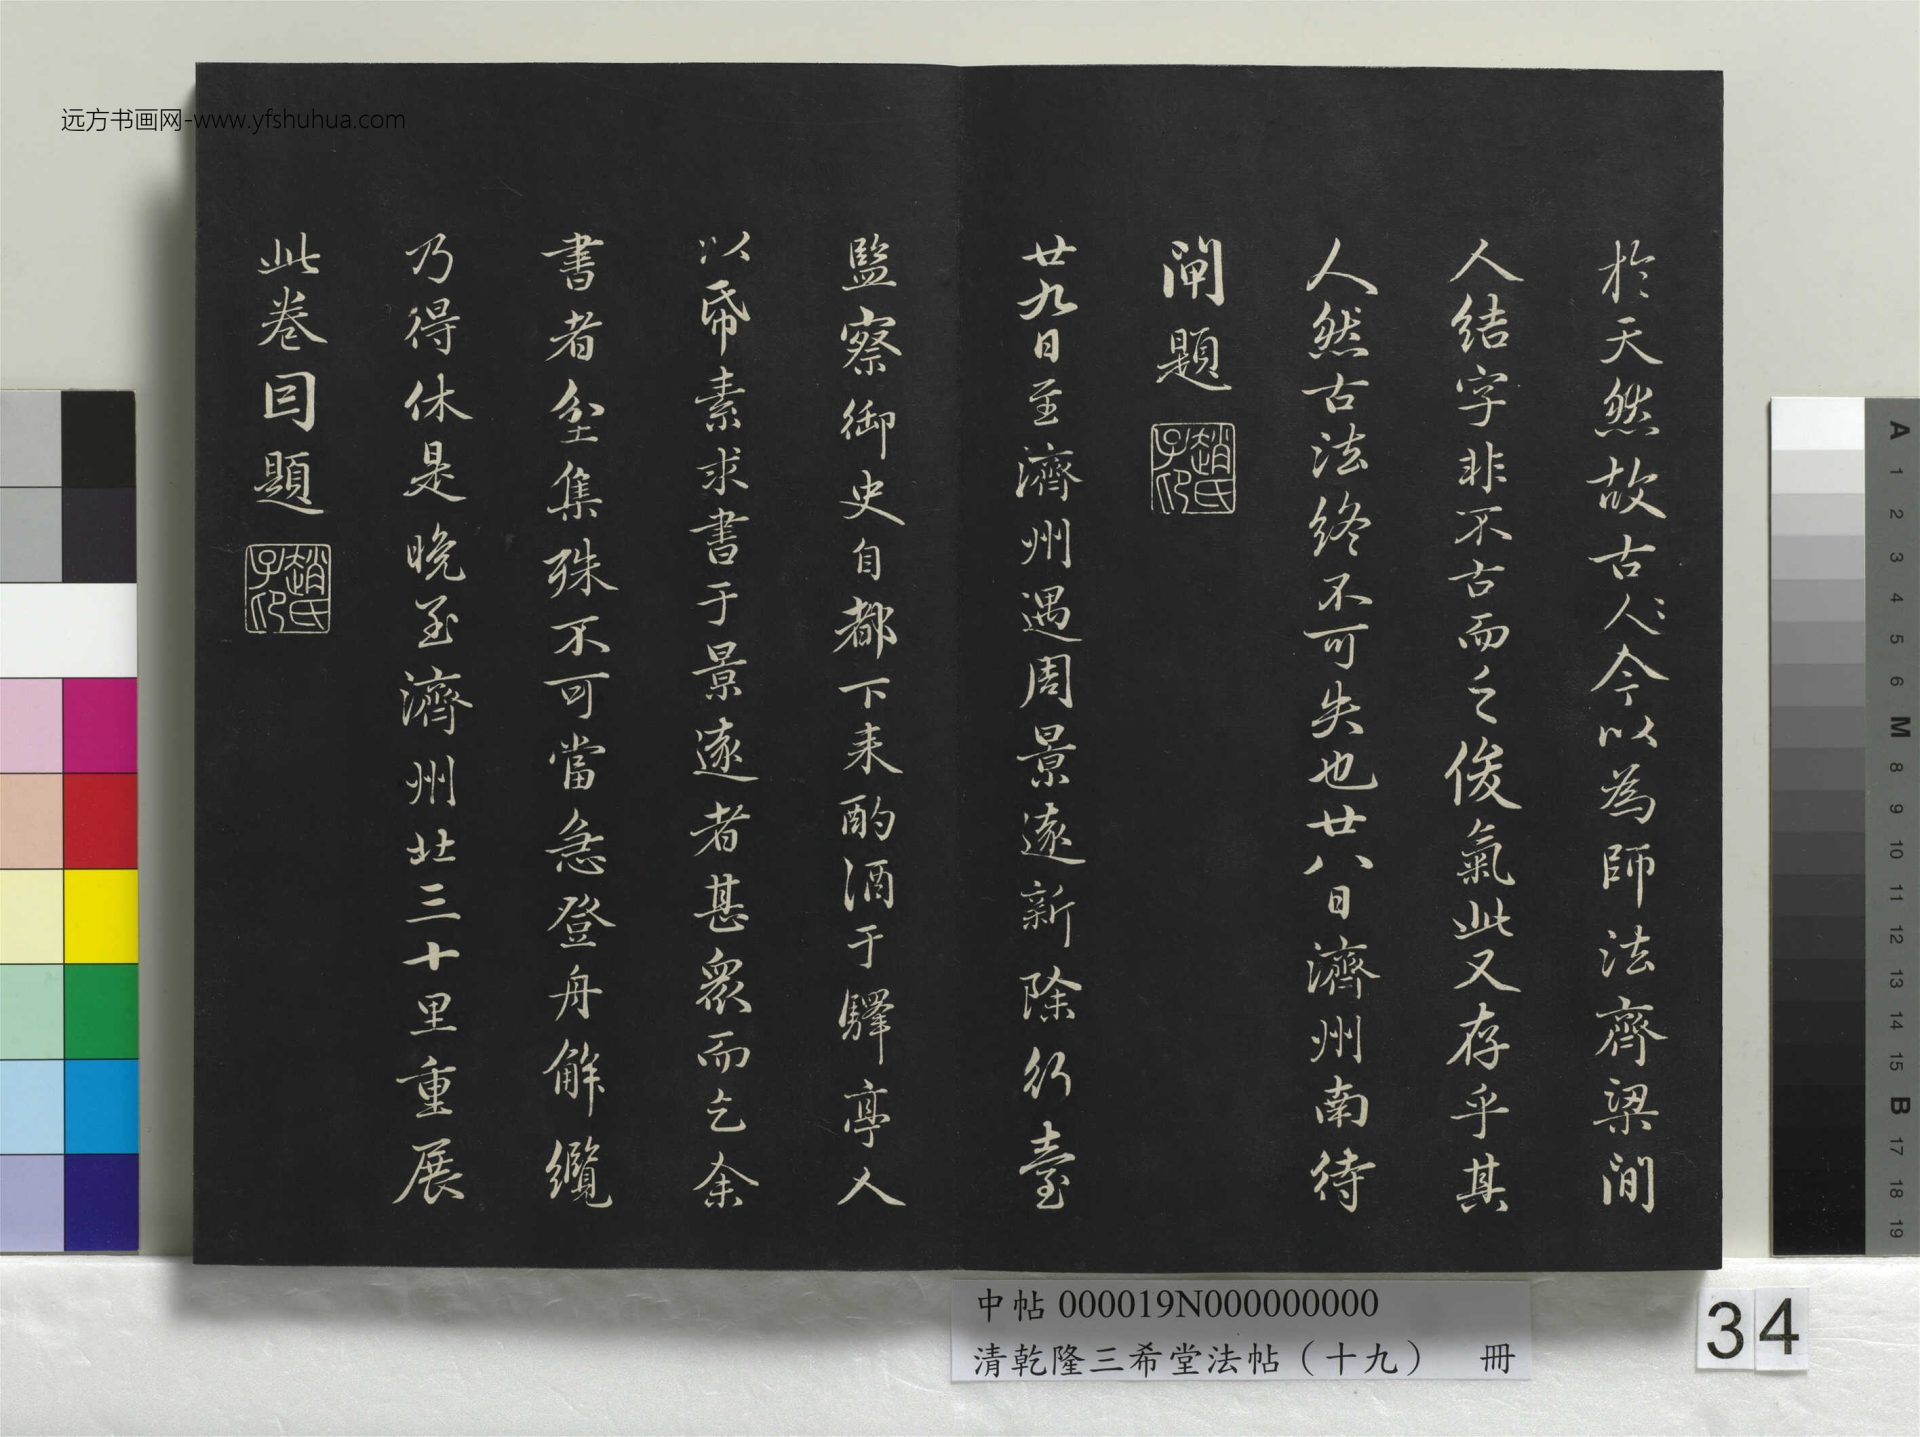 远方书画网-www.yfshuhua.com
於天然故古人〻今以為師法齊梁間
人結字非不古而乏俊氣此又存乎其
人然古法終不可失也廿八日濟州南待
閘題
趙氏子印
廿九日至濟州遇周景遠新除行臺
監察御史自都下来酌酒于驛亭人
以帋素求書于景遠者甚衆而乞余
書者坌集殊不可當急登舟解纜
乃得休是晚至濟州北三十里重展
此卷因題
趙氏子印
中帖 000019N000000000
清乾隆三希堂法帖（十九） 冊
34
A 1 2 3 4 5 6 M 8 9 10 11 12 13 14 15 B 17 18 19